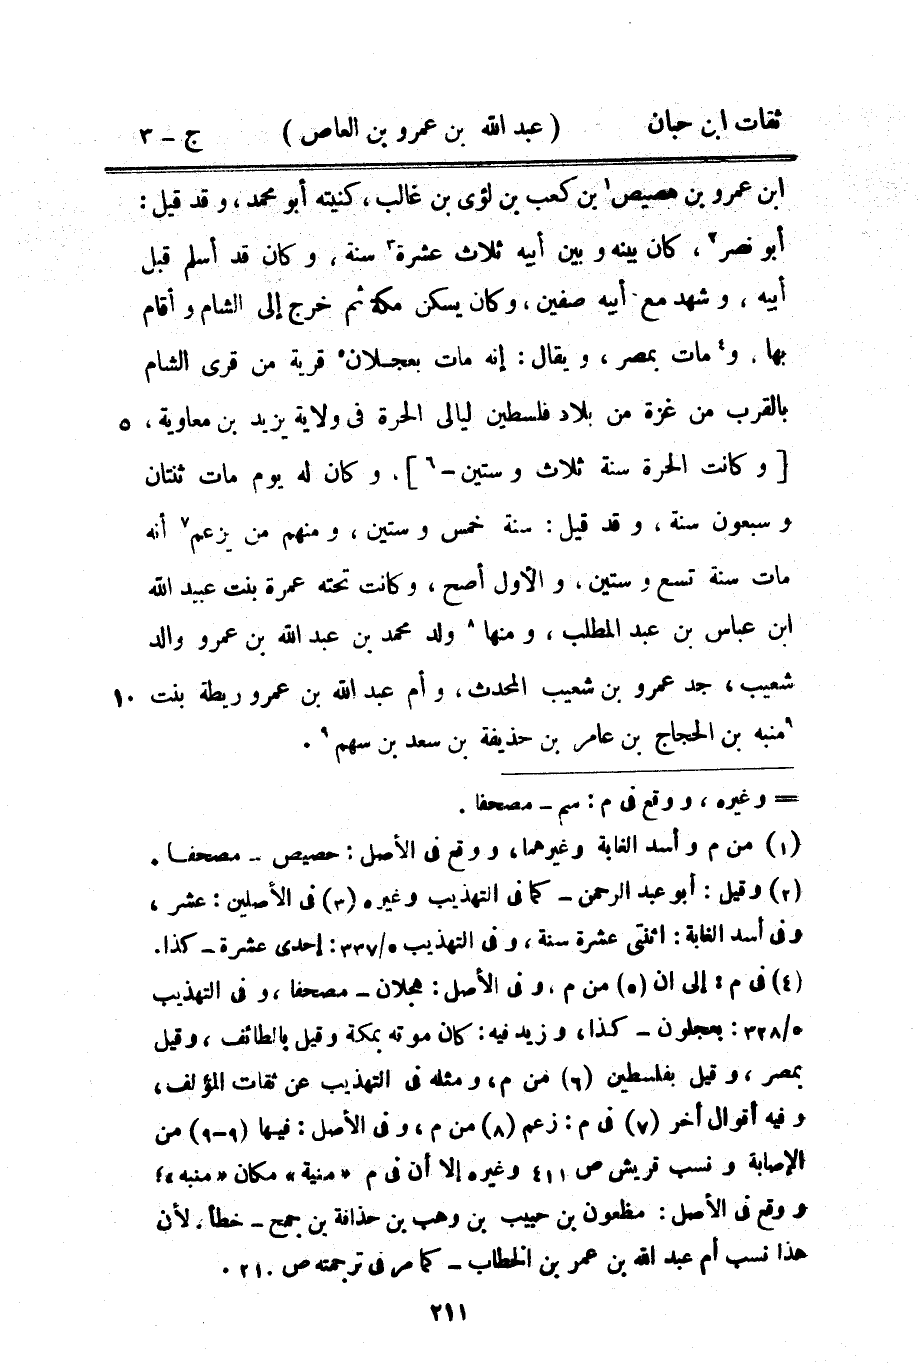 ثقات ابن حبان ( عبد الله بن عمرو بن العاص ) ج - ٣
ابن عمرو بن هصيص١ بن كعب بن لؤى بن غالب ، كنيته أبو محمد ، و قد قيل :
أبو نصر٢ ، كان بينه و بين أبيه ثلاث عشرة٣ سنة ، و كان قد أسلم قبل
أبيه ، و شهد مع أبيه صفين ، وكان يسكن مكة ثم خرج إلى الشام و أقام
بها . و٤ مات بمصر ، و يقال : إنه مات بعجلان٥ قرية من قرى الشام
بالقرب من غزة من بلاد فلسطين ليالى الحرة فى ولاية يزيد بن معاوية ، ٥
[ و كانت الحرة سنة ثلاث و ستين -٦ ] . و كان له يوم مات ثنتان
و سبعون سنة ، و قد قيل : سنة خمس و ستين ، و منهم من يزعم٧ أنه
مات سنة تسع و ستين . و الأول أصح ، وكانت تحته عمرة بنت عبيد الله
ابن عباس بن عبد المطلب ، و منها٨ ولد محمد بن عبد الله بن عمرو والد
شعيب ، جد عمرو بن شعيب المحدث ، و أم عبد الله بن عمرو ريطة بنت ١٠
٩منبه بن الحجاج بن عامر بن حذيفة بن سعد بن سهم٩ .
= و غيره ، و وقع فى م : سم - مصحفا .
(١) من م و أسد الغابة وغيرهما ، و وقع فى الأصل : حصيص - مصحفا .
(٢) وقيل : أبو عبد الرحمن - كما فى التهذيب وغيره (٣) فى الأصلين : عشر ،
وفى أسد الغابة : اثنتى عشرة سنة ، و فى التهذيب ٥/٣٣٧ : إحدى عشرة - كذا.
(٤) فى م : إلى ان (٥) من م ، و فى الأصل : هجلان - مصحفا ، و فى التهذيب
٥/٣٢٨ : بعجلون - كذا ، و زيد فيه : كان موته بمكة وقيل بالطائف ، وقيل
بمصر ، و قيل بفلسطين (٦) من م ، و مثله فى التهذيب عن ثقات المؤلف ،
و فيه أقوال أخر (٧) فى م : زعم (٨) من م ، و فى الأصل : فيها (٩-٩) من
الإصابة و نسب قريش ص ٤١١ وغيره إلا أن فى م « منية » مكان « منبه » ؛
و وقع فى الأصل : مظعون بن حبيب بن وهب بن حذافة بن جمح - خطأ ، لأن
هذا نسب أم عبد الله بن عمر بن الخطاب - كما مر فى ترجمته ص ٢١٠ .
٢١١